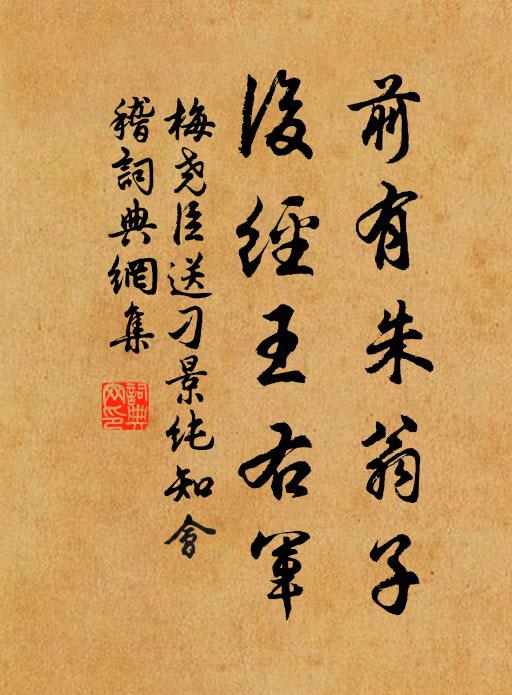 前有朱翁子
後經王右軍
梅尧臣送刁景纯知會
稽詞典網集
詞典
网印